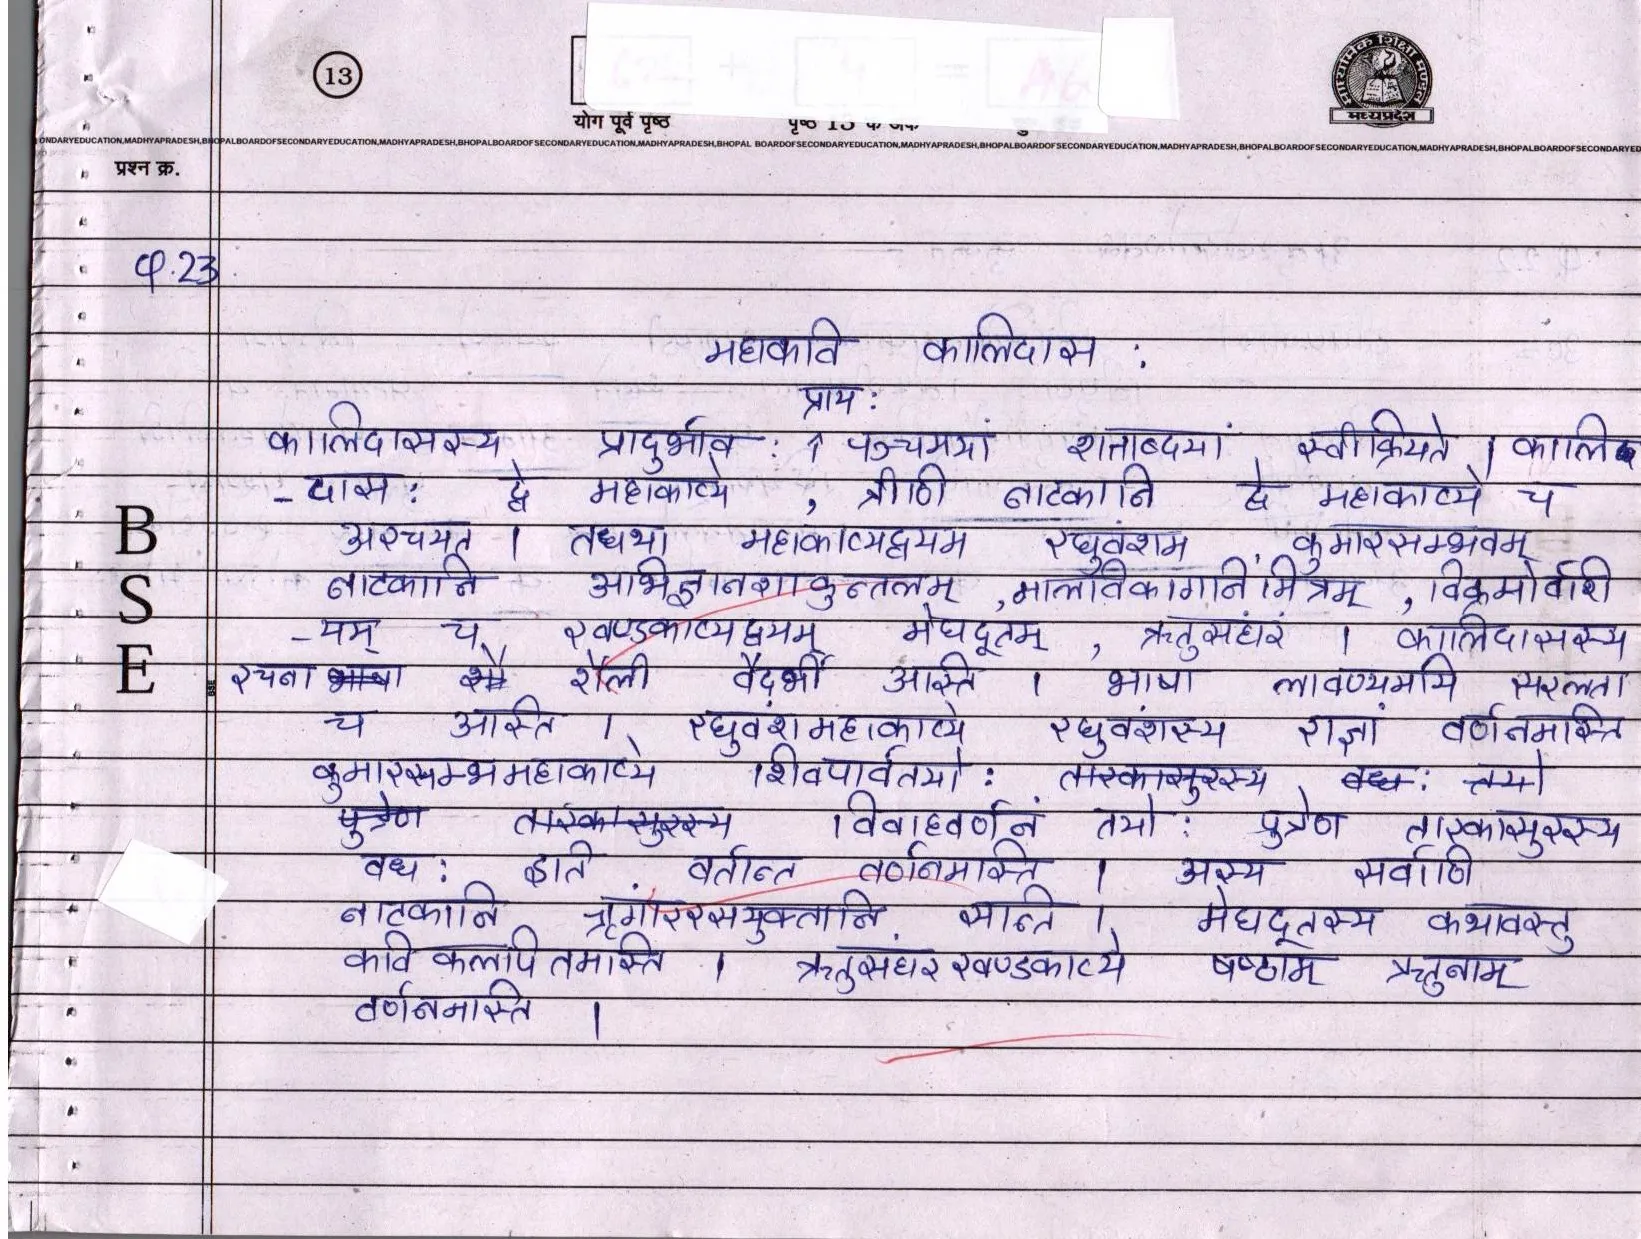 13
योग पूर्व पृष्ठ
मध्यप्रदेश
ONDARYEDUCATION,MADHYAPRADESH,BHOPALBOARDOFSECONDARYEDUCATION,MADHYAPRADESH,BHOPALBOARDOFSECONDARYEDUCATION,MADHYAPRADESH,BHOPAL BOARDOFSECONDARYEDUCATION,MADHYAPRADESH,BHOPALBOARDOFSECONDARYEDUCATION,MADHYAPRADESH,BHOPALBOARDOFSECONDARYED
प्रश्न क्र.
प्र.23
महाकवि कालिदास :
प्राय:
कालिदासस्य प्रादुर्भाव: ↑ पञ्चमयां शताब्दयां स्वीक्रियते । कालि
-दास: द्वे महाकाव्ये , त्रीणि नाटकानि द्वे महाकाव्ये च
अरचयत् । तद्यथा महाकाव्यद्वयम रघुवंशम , कुमारसम्भवम्
नाटकानि अभिज्ञानशाकुन्तलम् , मालविकागनिमित्रम् , विक्रमोर्वाशी
-यम् च खण्डकाव्यद्वयम् मेघदूतम् , ऋतुसंहारं । कालिदासस्य
रचना भाषा शै शैली वैदर्भी अस्ति । भाषा लावण्यमयि सरलता
च अस्ति । रघुवंशमहाकाव्ये रघुवंशस्य राज्ञां वर्णनमास्ति
कुमारसम्भमहाकाव्ये शिवपार्वतयो: तारकासुरस्य वध: तयो
पुत्रेण तारकासुरस्य विवाहवर्णनं तयो: पुत्रेण तारकासुरस्य
वध: इति वर्तान्त वर्णनमास्ति । अस्य सर्वाणि
नाटकानि श्रृगांररसयुक्तानि सान्ति । मेघदूतस्य कथावस्तु
कवि कलपितमास्ति । ऋतुसंघर खण्डकाव्ये षष्ठाम् ऋतुनाम्
वर्णनमास्ति ।
B
S
E
BSE